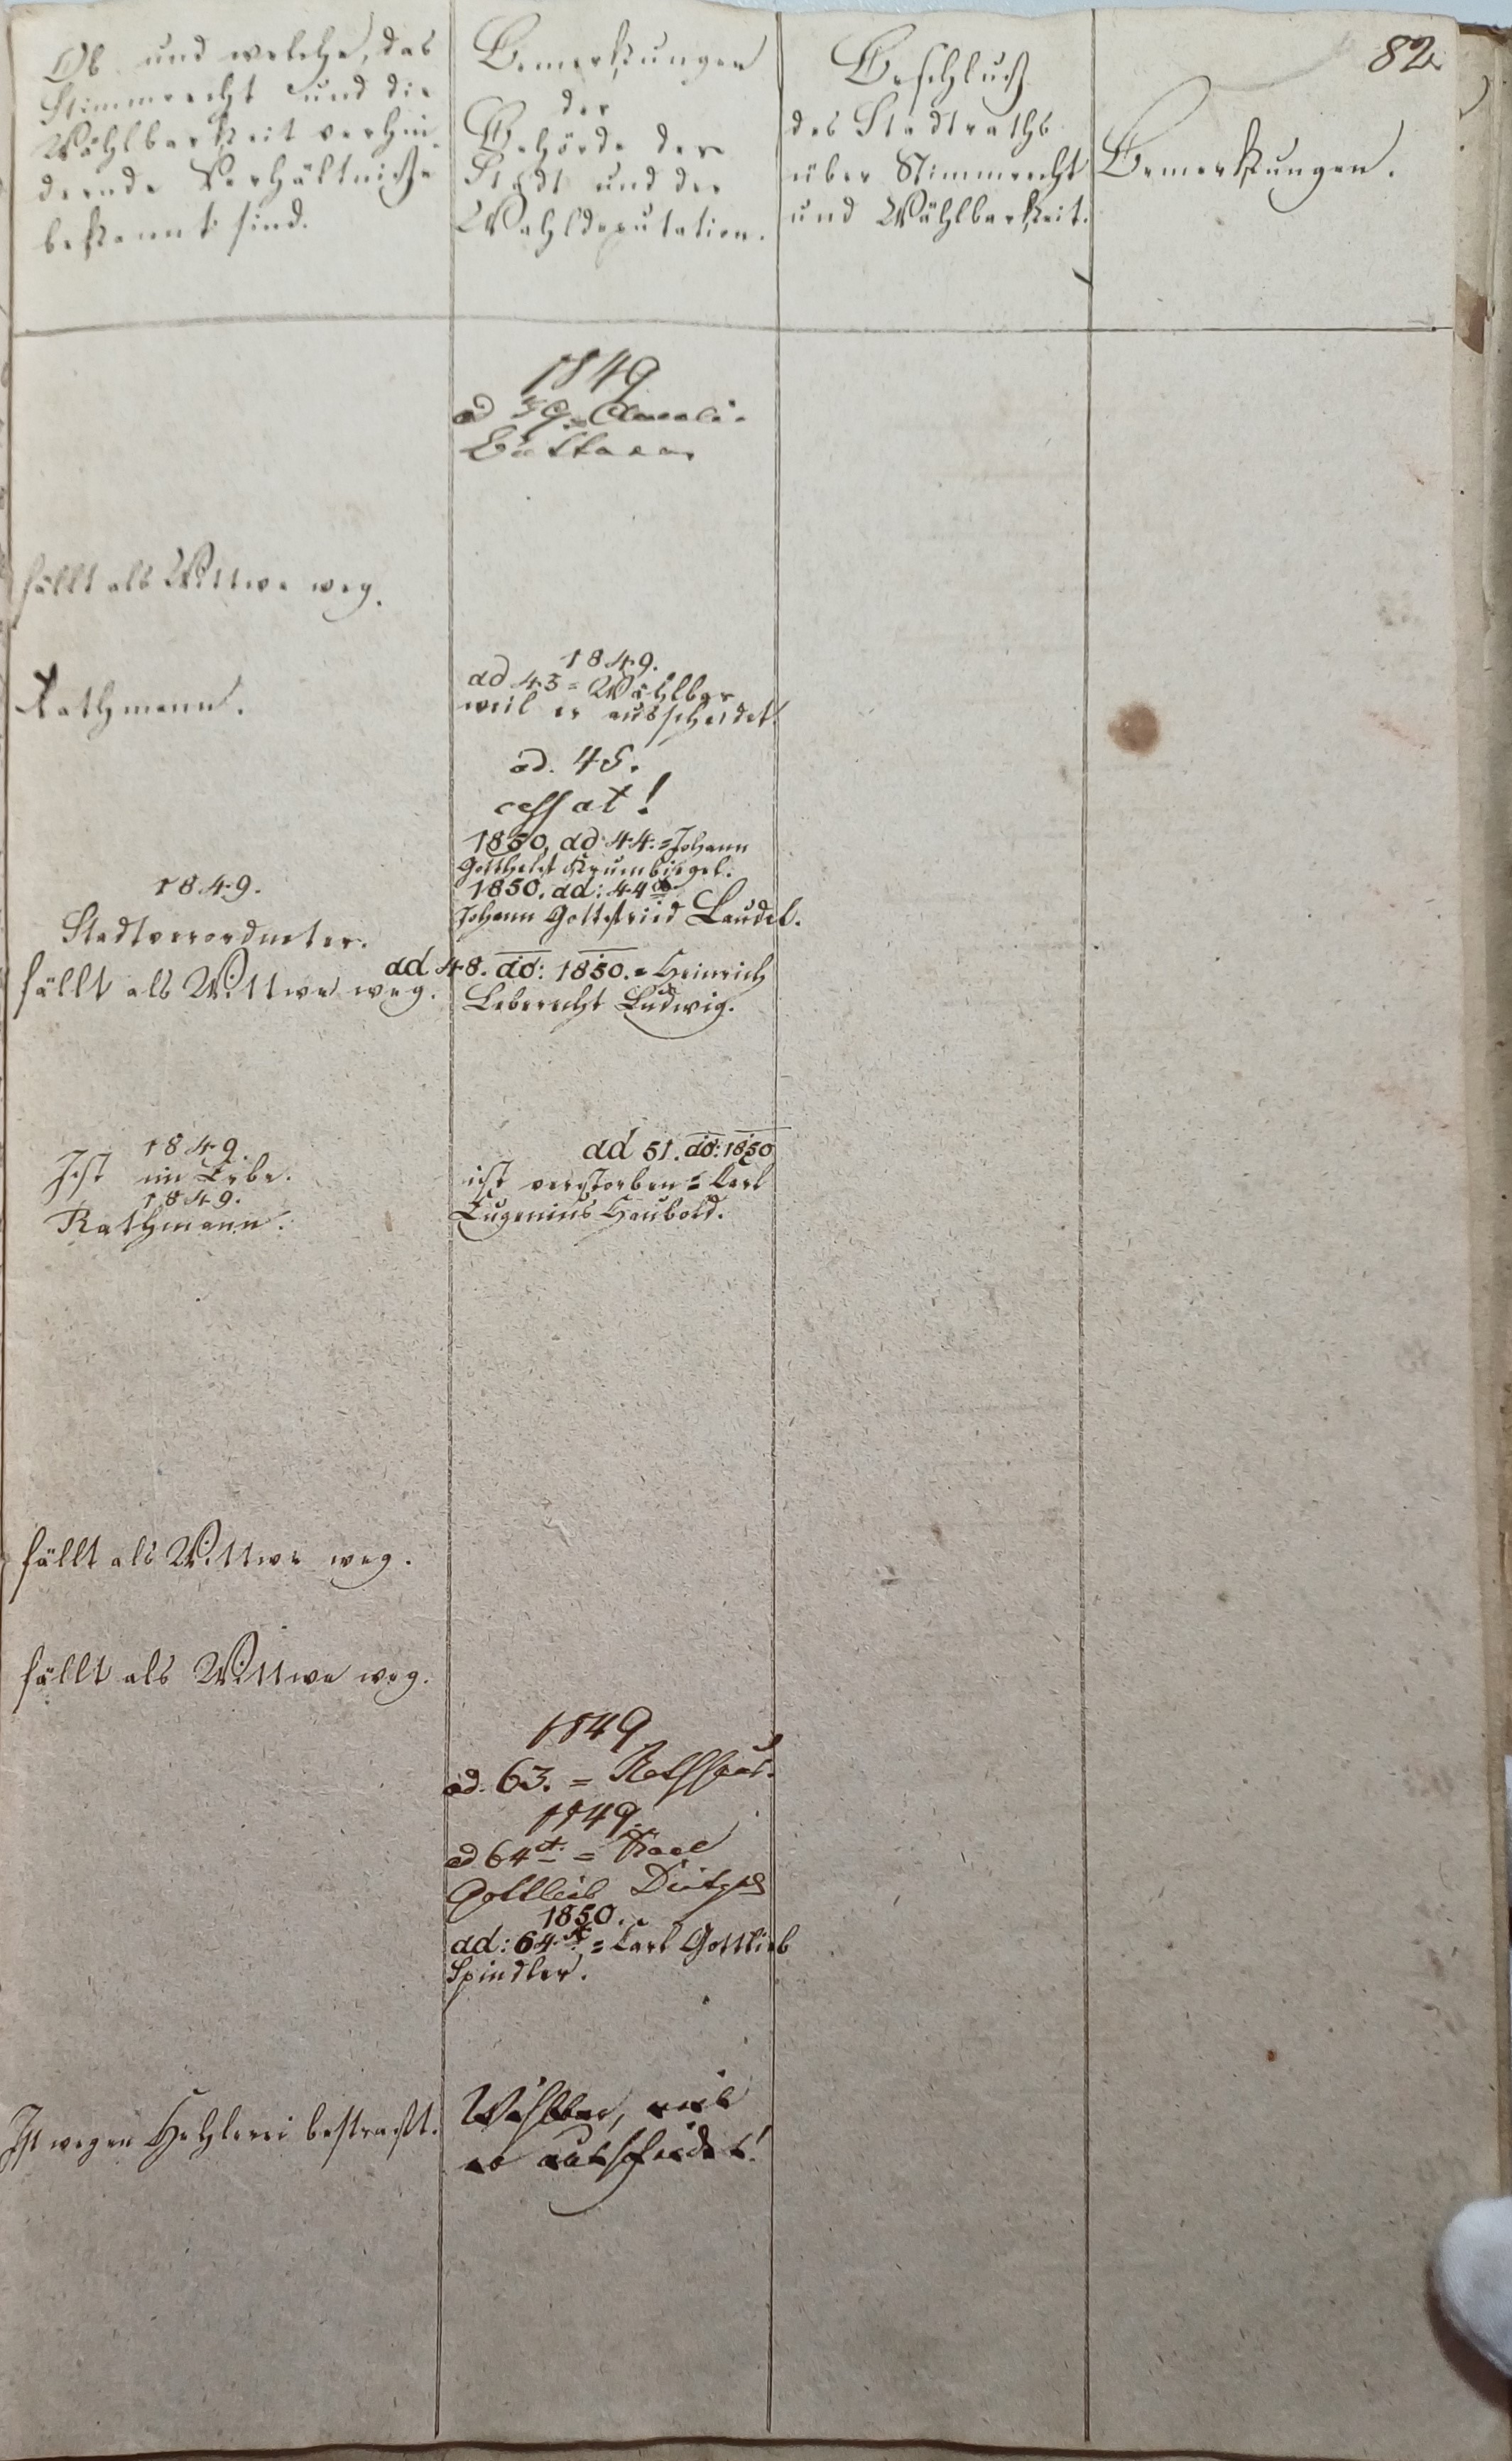 82.
Ob und welche, das
Stimmrecht und die
Wählbarkeit verhin-
dernde Verhältniße
bekannt sind.
Bemerkungen
der
Behörde der
Stadt und der
Wahldeputation.
Beschluß
des Stadtraths
über Stimmrecht
und Wählbarkeit.
Bemerkungen.
1849
ad
fällt als Wittwe weg.
Rathmann.
1849.
ad 43 = Wählbar
weil er ausscheidet.
ad. 45.
cessat!
1850, ad 44. = Johann
Gotthelf Krumbiegel.
1850. ad: 44
Johann Gottfried Laudel.
1849.
Stadtverordneter.
fällt als Wittwe weg.
ad 48. do: 1850. = Heinrich
Leberecht Ludwig.
1849.
Ist im Erbe.
1849.
Rathmann.
ad 51. do: 1850
ist verstorben = Carl
Eugenius Haubold.
fällt als Wittwe weg.
fällt als Wittwe weg.
1849
ad. 63. =
1849.
ad 64 = Karl
Gottlieb
1850.
ad: 64 = Carl Gottlieb
Spindler.
Ist wegen Hehlerei bestraft.
Wählbar, weil
er ausscheidet!